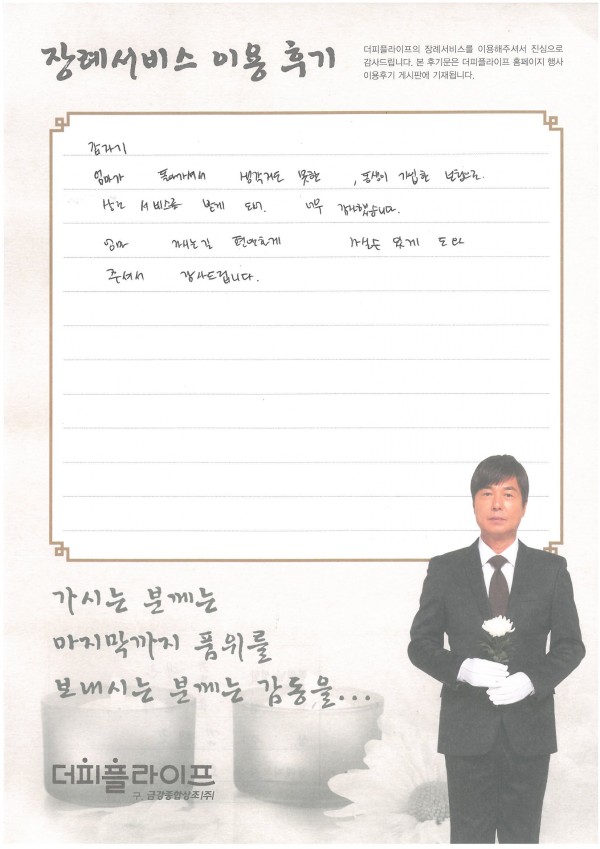 장례서비스 이용 후기
더피플라이프의 장례서비스를 이용해주셔서 진심으로
감사드립니다. 본 후기문은 더피플라이프 홈페이지 행사
이용후기 게시판에 기재됩니다.
갑자기
엄마가 돌아가셔서 생각지도 못한, 동생이 가입한 보험으로
상조 서비스를 받게 되어. 너무 감사했습니다.
엄마 가시는길 편안하게 가실수 있게 도와
주셔서 감사드립니다.
가시는 분께는
마지막까지 품위를
보내시는 분께는 감동을...
더피플라이프
구. 금강종합상조(주)